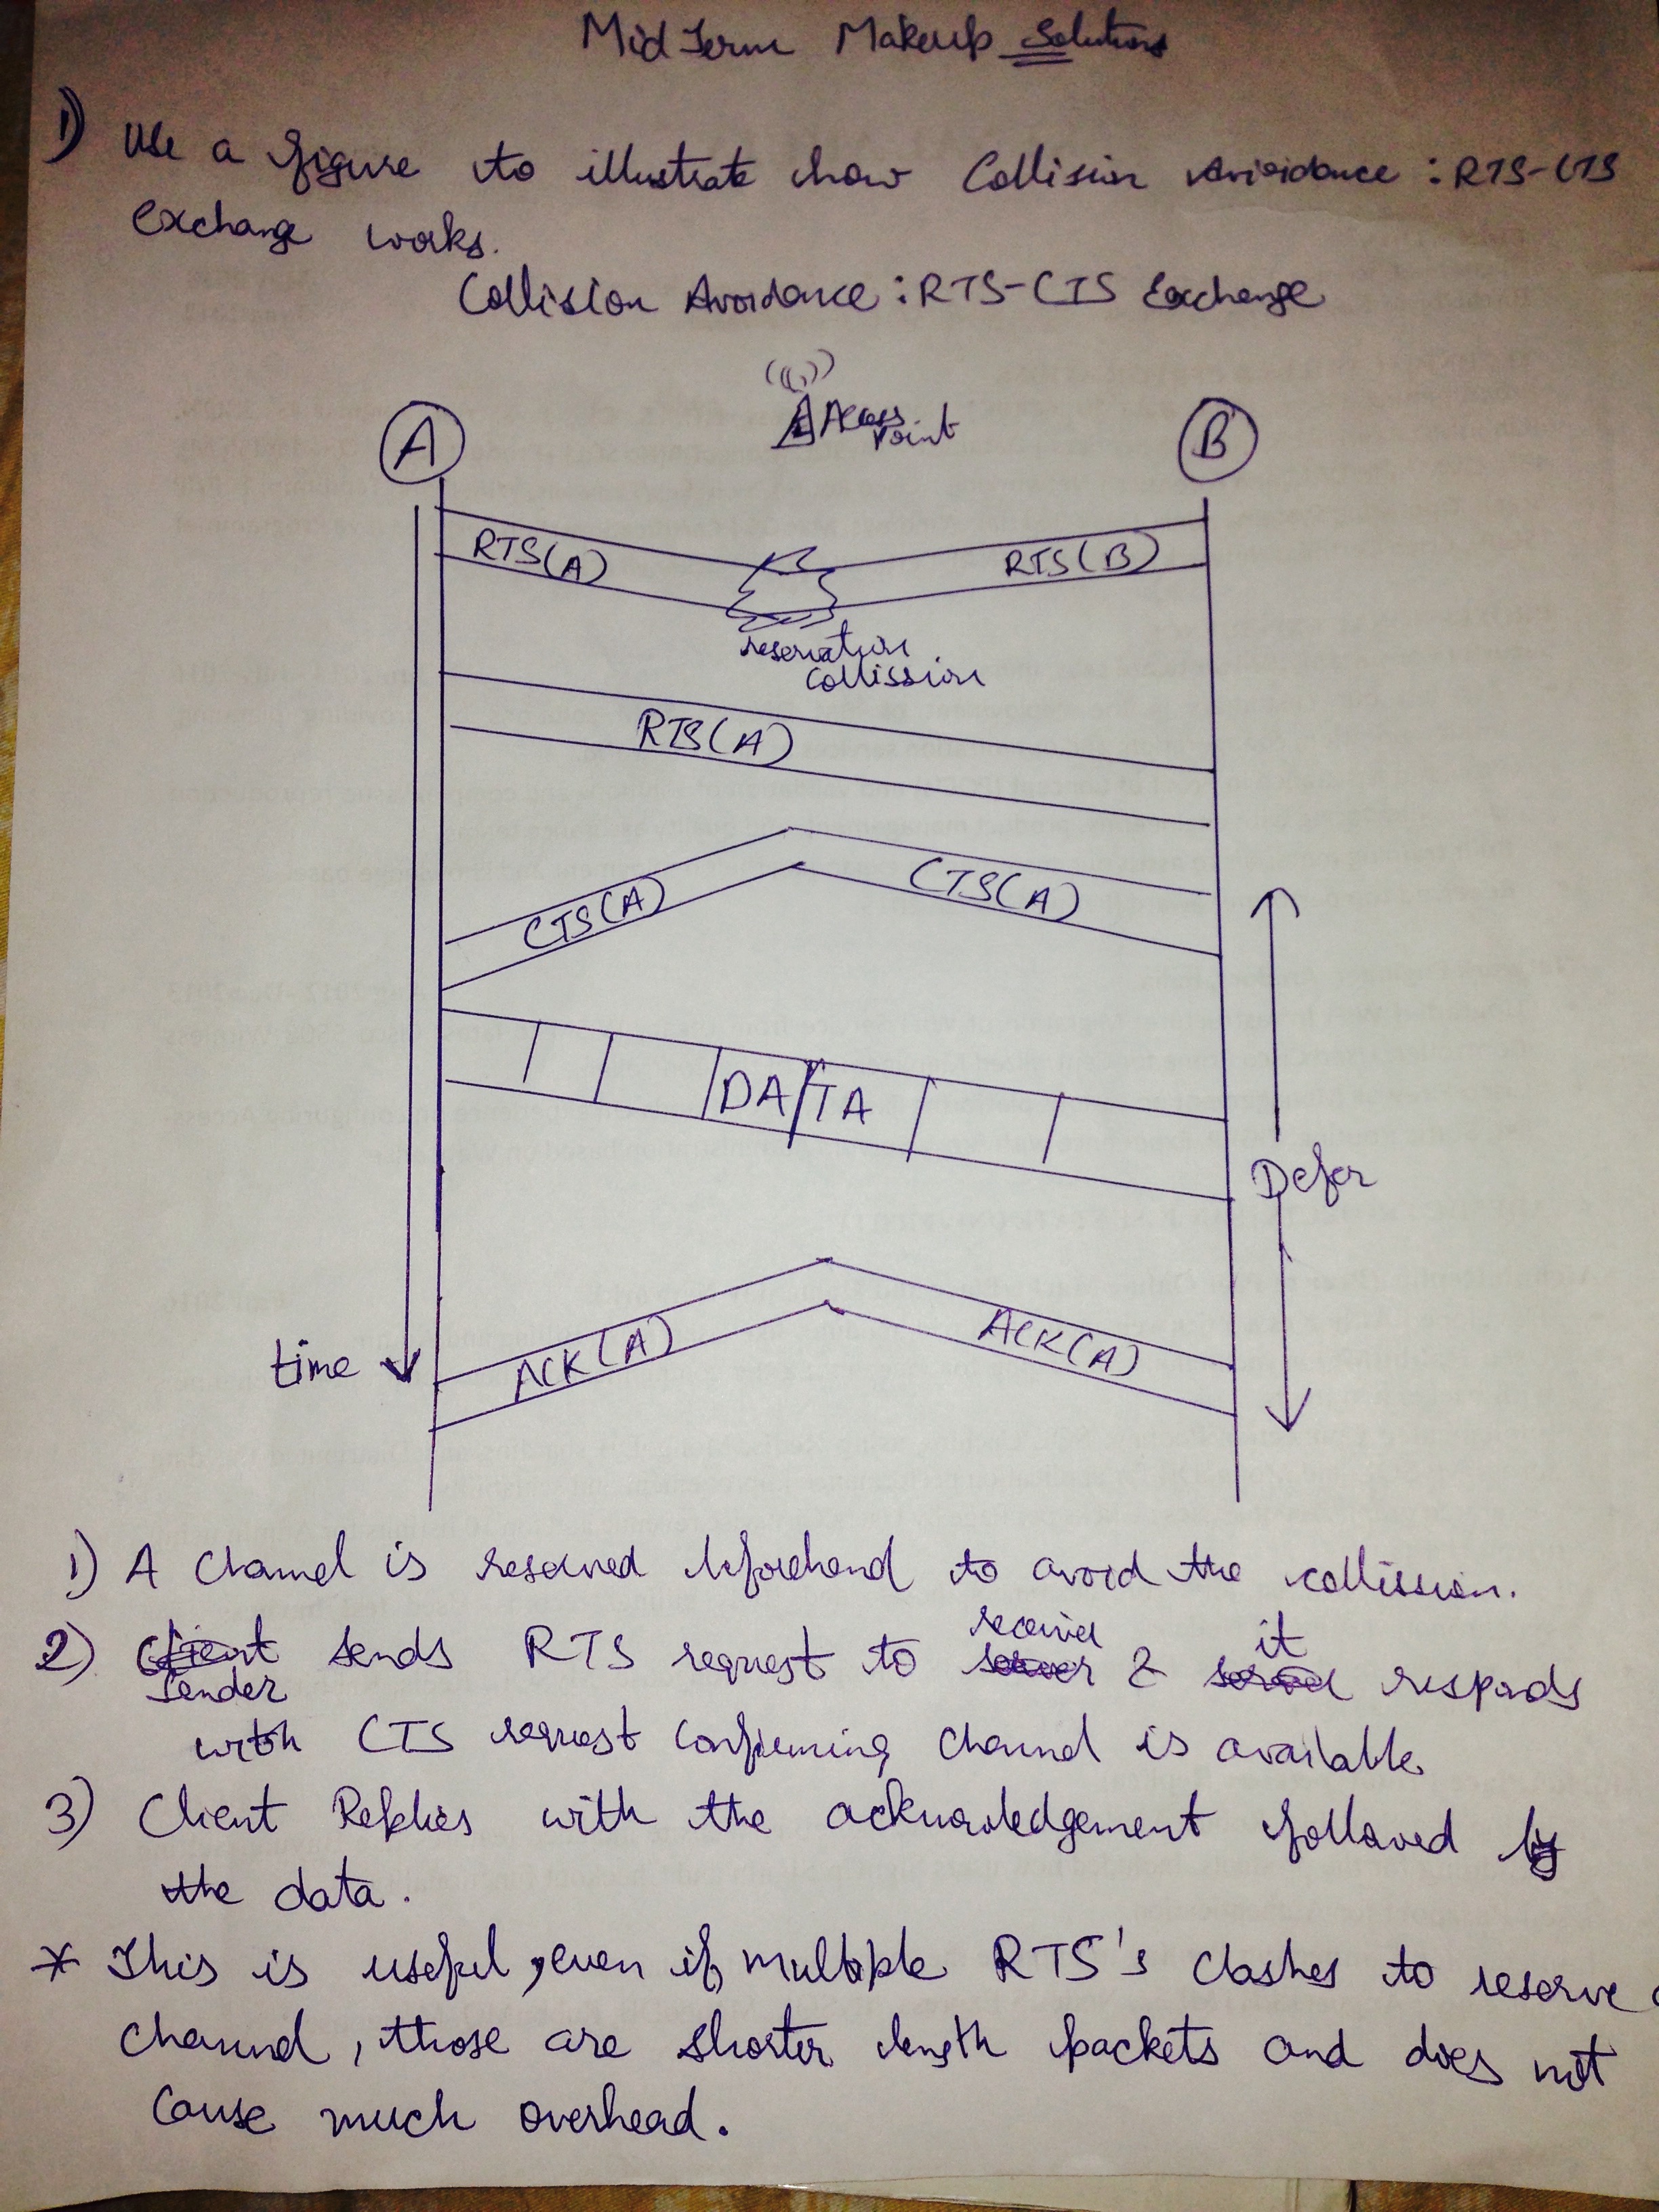 Mid Term Makeup Solutions
1) Use a figure to illustrate how Collision Avioidance : RTS-CTS
Exchange works.
Collision Avoidance : RTS-CTS Exchange
A
Access
Point
B
RTS(A)
RTS(B)
reservation
Collission
RTS(A)
CTS(A)
CTS(A)
DATA
Defer
ACK(A)
ACK(A)
time
1) A Channel is reserved beforehand to avoid the collission.
2) Sender sends RTS request to receiver & it responds
with CTS request Confirming Channel is available.
3) Client Replies with the acknowledgement followed by
the data.
* This is useful, even if multiple RTS's clashes to reserve a
channel, those are shorter length packets and does not
cause much overhead.